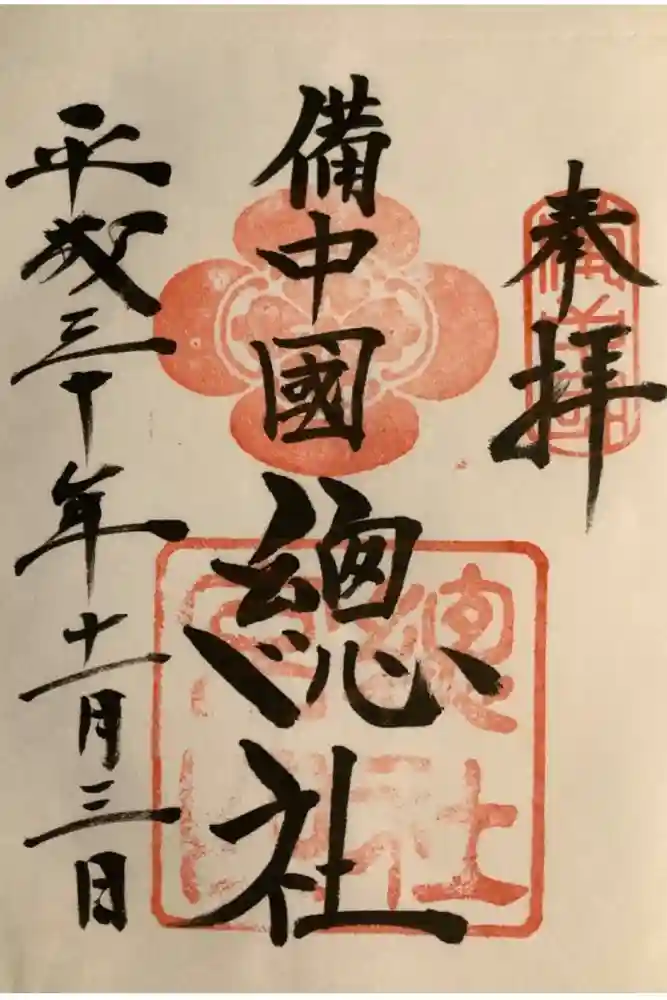 奉拝
備中國
備中國
總社
平成三十年十一月三日